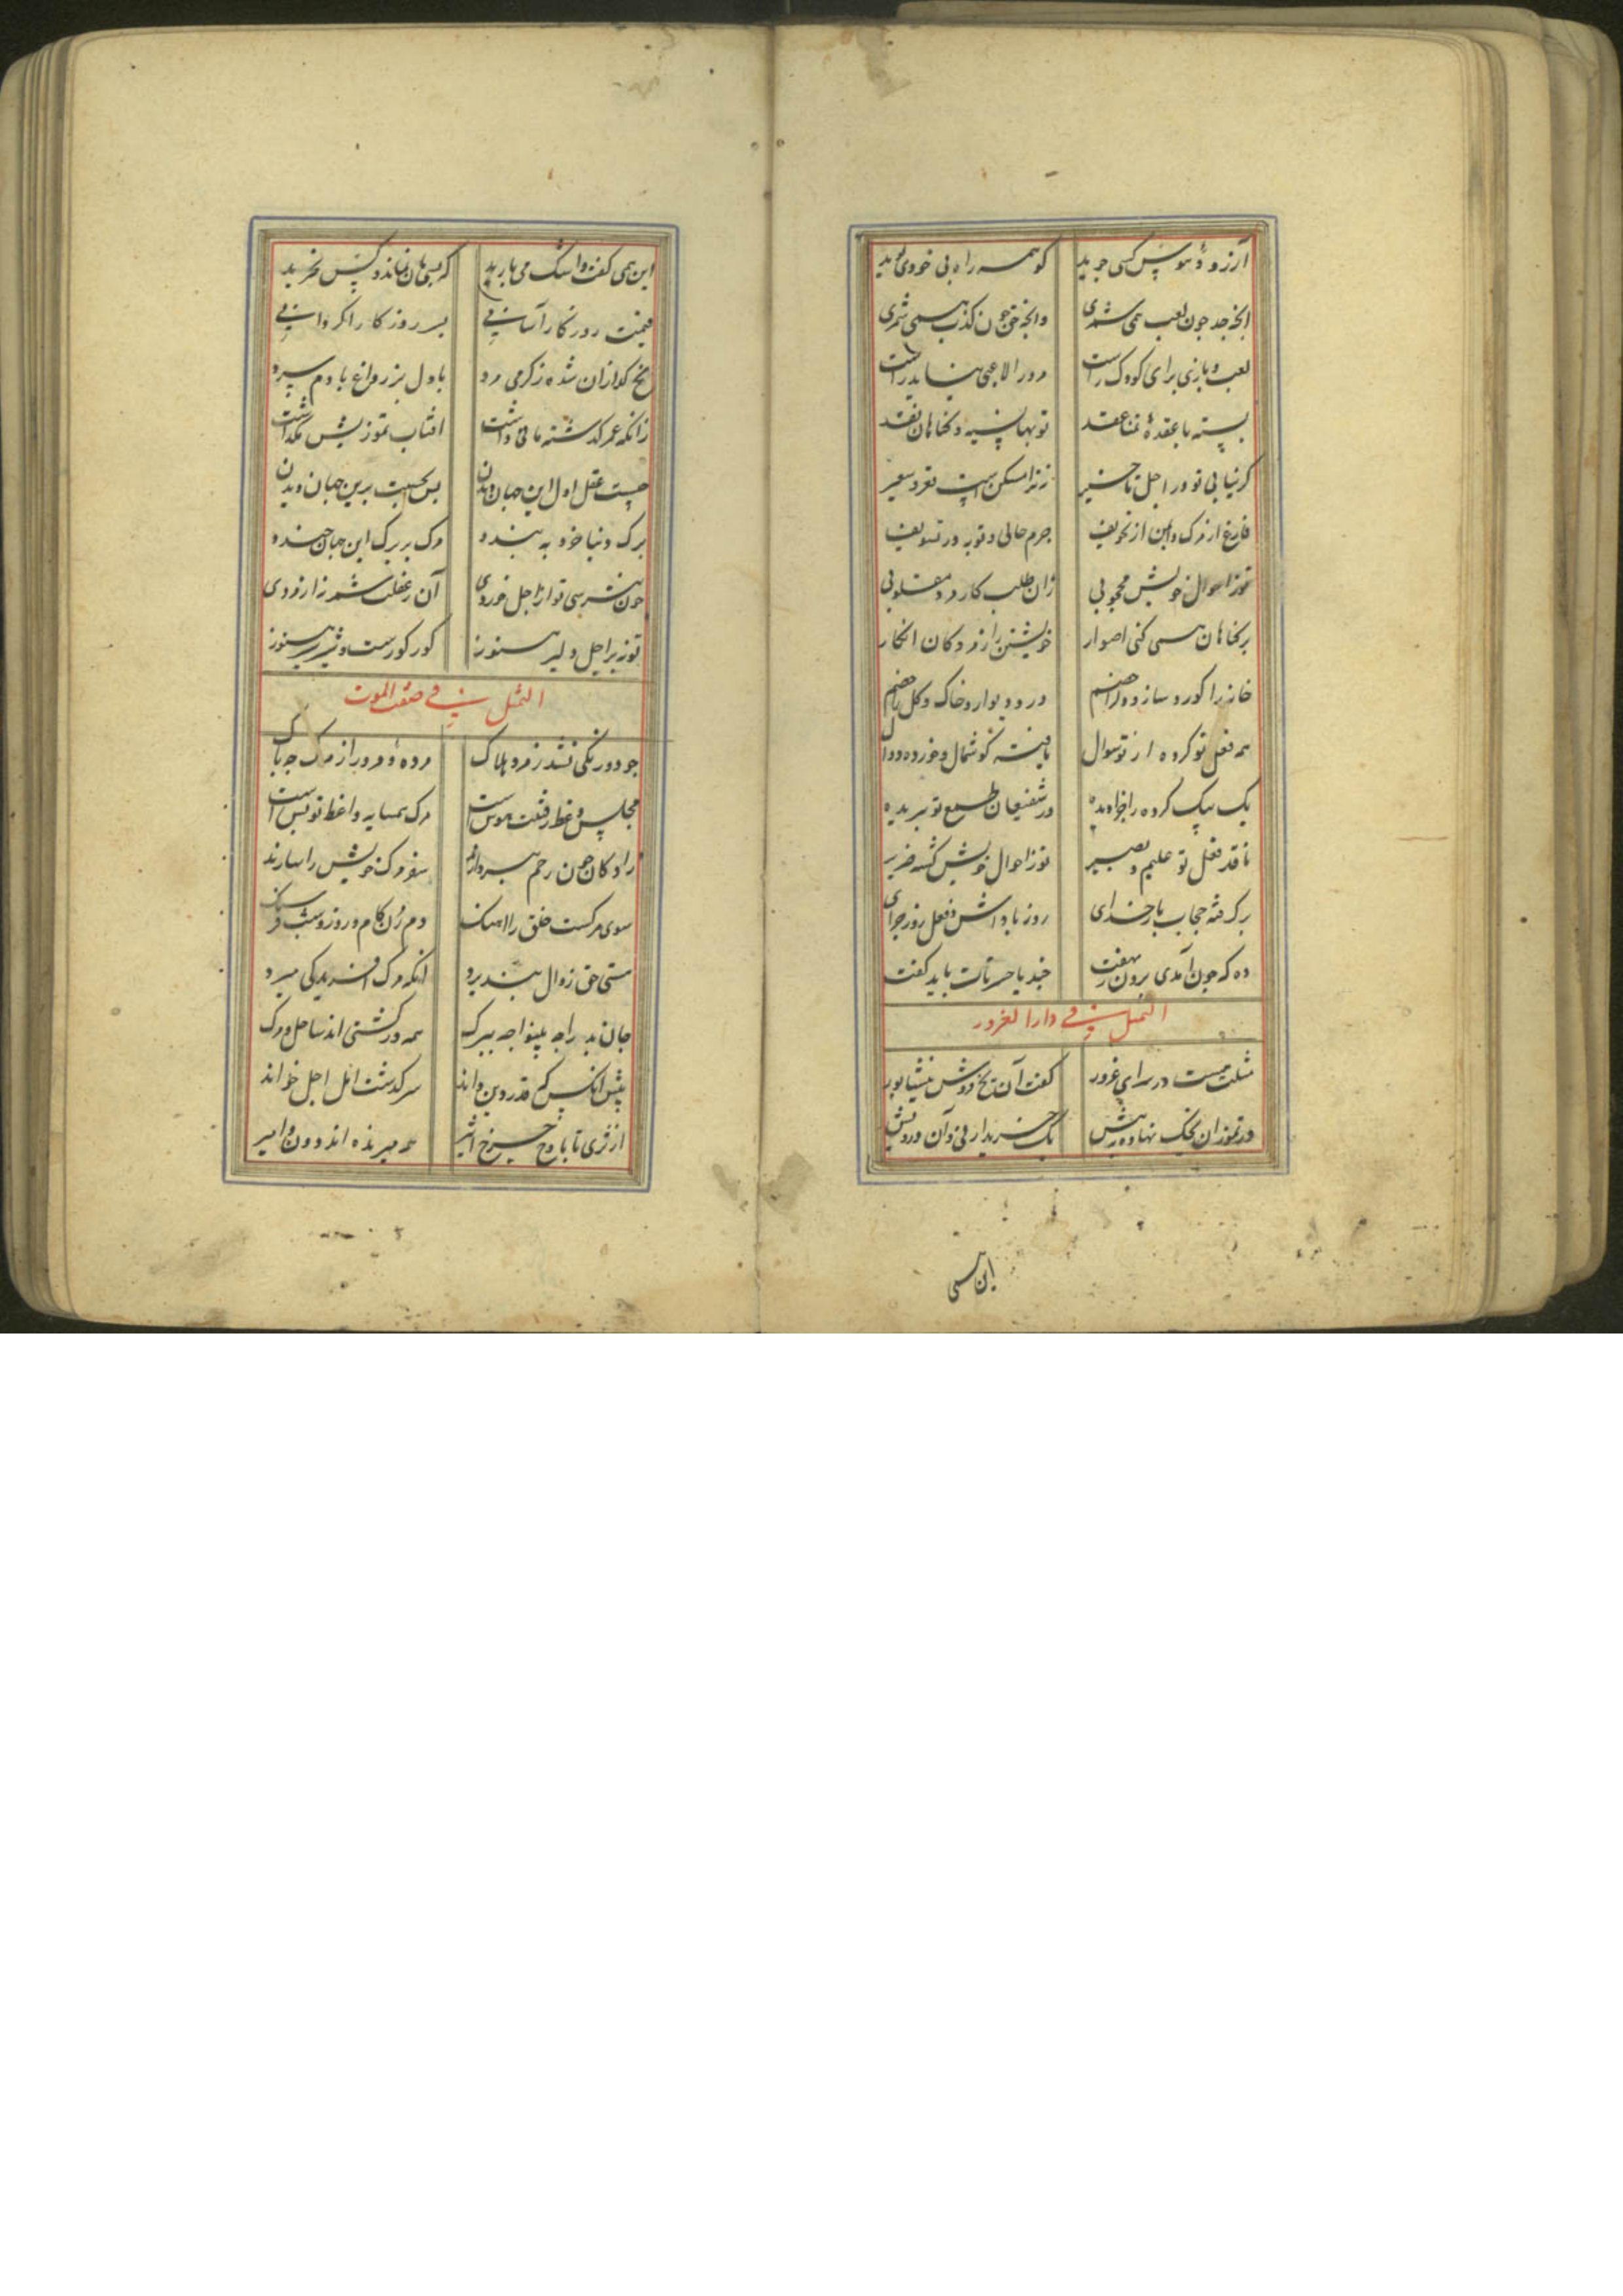 آرزو و هوس کسی جوید کو همه راه بی خودی پوید
انچه جد چون لعب همی شمری وانچه حق چون کذب همی شمری
لعب و بازی برای کودک راست مرد را لاعبی نباید راست
بسته با عقدهٔ فنا عقد توبها نسیه و گناهان نقد
کر نیابی تو در اجل تاخیر زندامسکن است قعر سعیر
فارغ از مرک و ایمن از تخویف جرم حالی و توبه در تسویف
تو ز احوال خویش محجوبی زان طلب کار مرد معیوبی
بر کناهان همی کنی اصرار خویشتن را ز مردکان انکار
خانه را کور و سازدو را خصم در و دیوار و خاک و کل را خصم
همه فعل تو کرده از تو سوال یافته کوشمال و خورده دوال
یک بیک کرده را جزا دیده ور شفیعان طمع تو ببریده
ناقد فعل تو علیم و بصیر تو ز احوال خویش کشته ضریر
برکرفته حجاب بار خدای روز پاداش و فعل روز جزای
ده که چون آمدی برون ز نهفت چند یا حسرتات باید کفت
التمثیل فی دار الغرور
مثلت هست در سرای غرور کفت آن یخ فروش نیشابور
در تموز آن یخک نهاده به پیش یک خریدار نی و آن درویش
این همی
این همی کفت و اشک می بارید که بسی مان نماند و کس نخرید
قیمت روزکار آسانی بسر روزکار اکر دانی
یخ کدازان شده ز کرمی مرد با دل پر ز داغ با دم سرد
زانکه عمر کذشته باقی داشت افتاب تموز یخش نکذاشت
چیست عقل اول این جهان دیدن بس بحسبت برین جهان دیدن
برک دنیا خرد به نپسندد مرک بر برک این جهان خندد
چون نترسی تو از اجل خوردی آن ز غفلت شمر نه از مردی
تو ز بر اجل دلیر هنوز کور کورست و شیر شیر هنوز
التمثیل فی صفت الموت
چو دو رنکی نشد ز مرد هلاک مرده و مرد را ز مرک چه باک
مجلس وعظ رفتنت هوس است مرک همسایه واعظ تو بس است
زادکان چون رحم بپردازند سفر مرک خویش را سازند
سوی مرکست خلق را اهنک دم زدن کام و روز و شب فرسنک
هستی حق زوال نپذیرد انکه مرک افرید کی میرد
جان بد را چه بینوا چه ببرک همه در کشتی اند ساحل مرک
پیش انکس کم قدر دین داند سرکذشت امل اجل خواند
از ثری تا باوج چرخ اثیر همه میرنده اند دون و امیر